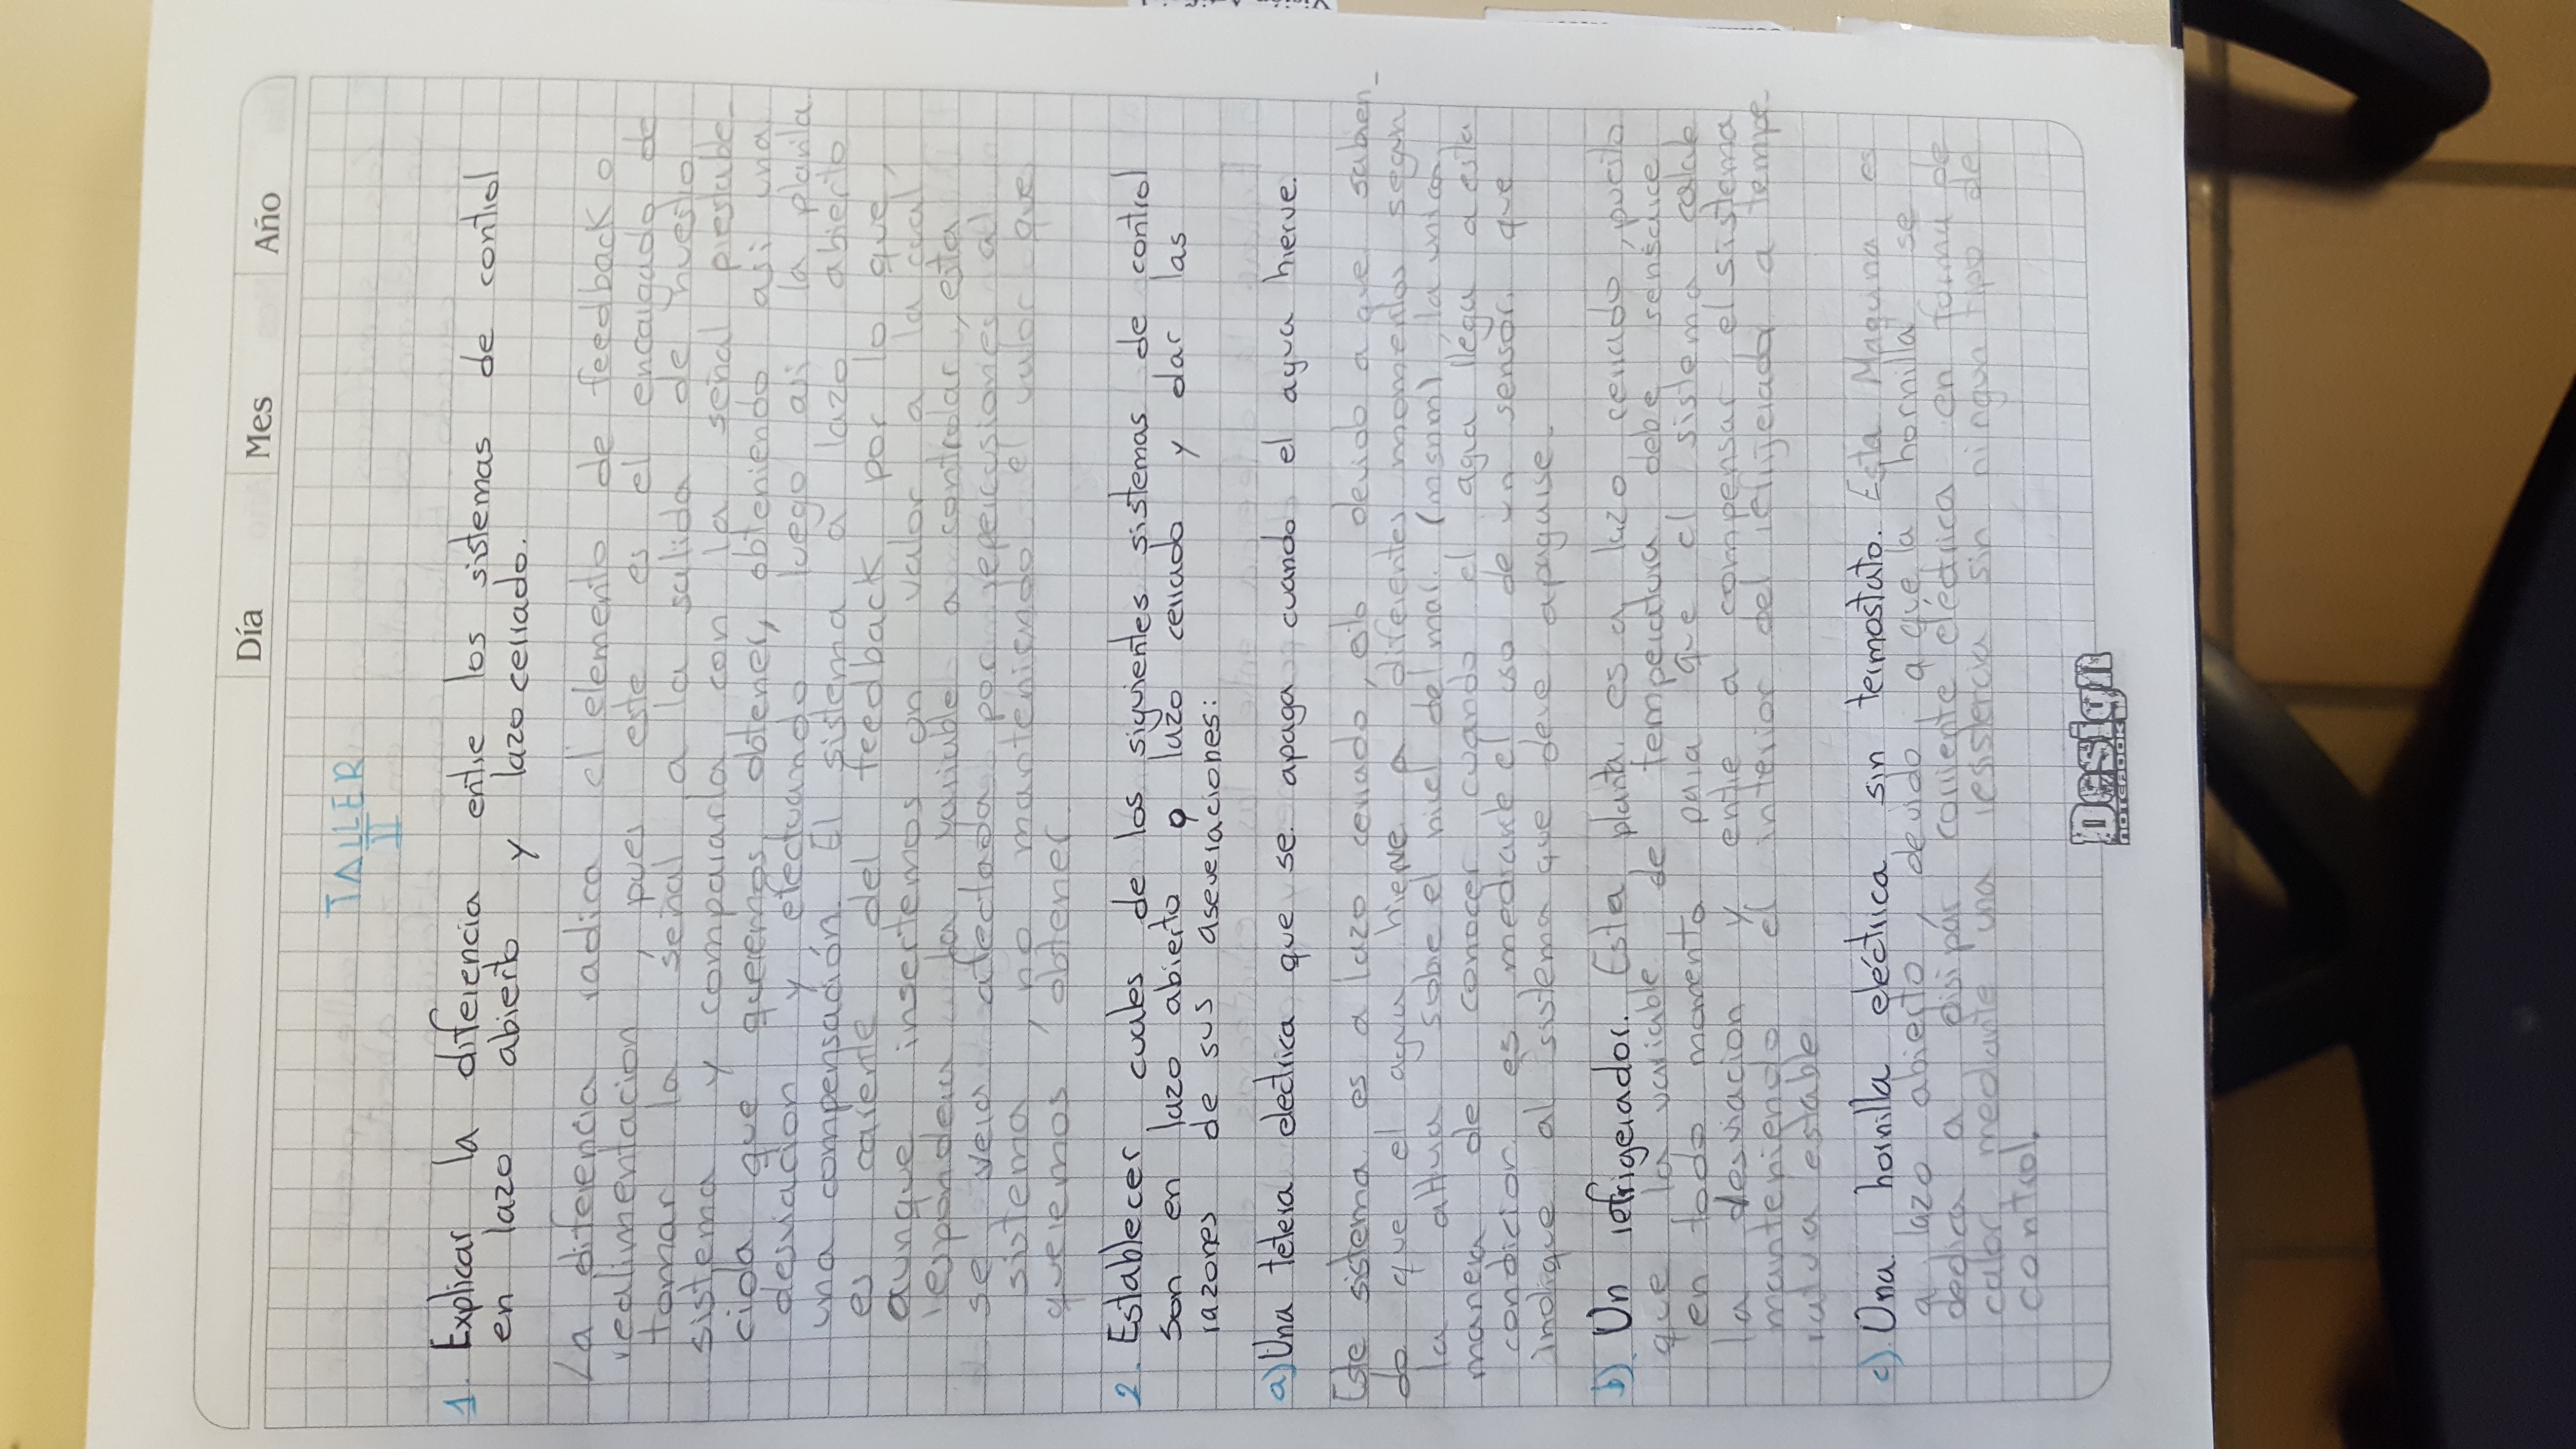 Día Mes Año
TALLER
II
1. Explicar la diferencia entre los sistemas de control
en lazo abierto y lazo cerrado.
La diferencia radica el elemento de feedback o
realimentacion, pues este es el encargado de
tomar la señal a la salida de nuestro
sistema y compararla con la señal prestable-
cida que queremos obtener, obteniendo asi una
desviacion y efectuando luego asi la planta
una compensación. El sistema a lazo abierto
es carente del feedback por lo que,
aunque insertemos un valor a la cual
respondera la variable a controlar, esta
se vera afectada por repercusiones al
sistema, no manteniendo el valor que
queremos obtener
2. Establecer cuales de los siguientes sistemas de control
son en lazo abierto o lazo cerrado y dar las
razones de sus aseveraciones:
a) Una tetera electrica que se apaga cuando el agua hierve.
Este sistema es a lazo cerrado, ello devido a que sabien_
do que el agua hierve a diferentes momentos segun
la altura sobre el nivel del mar. (msnm), la unica
manera de conocer cuando el agua llega a esta
condicion es mediante el uso de un sensor que
indique al sistema que deve apagarse.
b) Un refrigerador. Esta planta es a lazo cerrado, puesto
que la variable de temperatura debe sensarce
en todo momento para que el sistema
la desviacion y entre a compensar el sistema
manteniendo el interior del refrijerador a tempe-
ratura estable
c) Una hornilla eléctrica sin termostato. Esta Maquina es
a lazo abierto, devido a que la hornilla se
dedica a disipar corriente eléctrica en forma de
calor mediante una resistencia sin ningun tipo de
control.
Design
NOTEBOOK